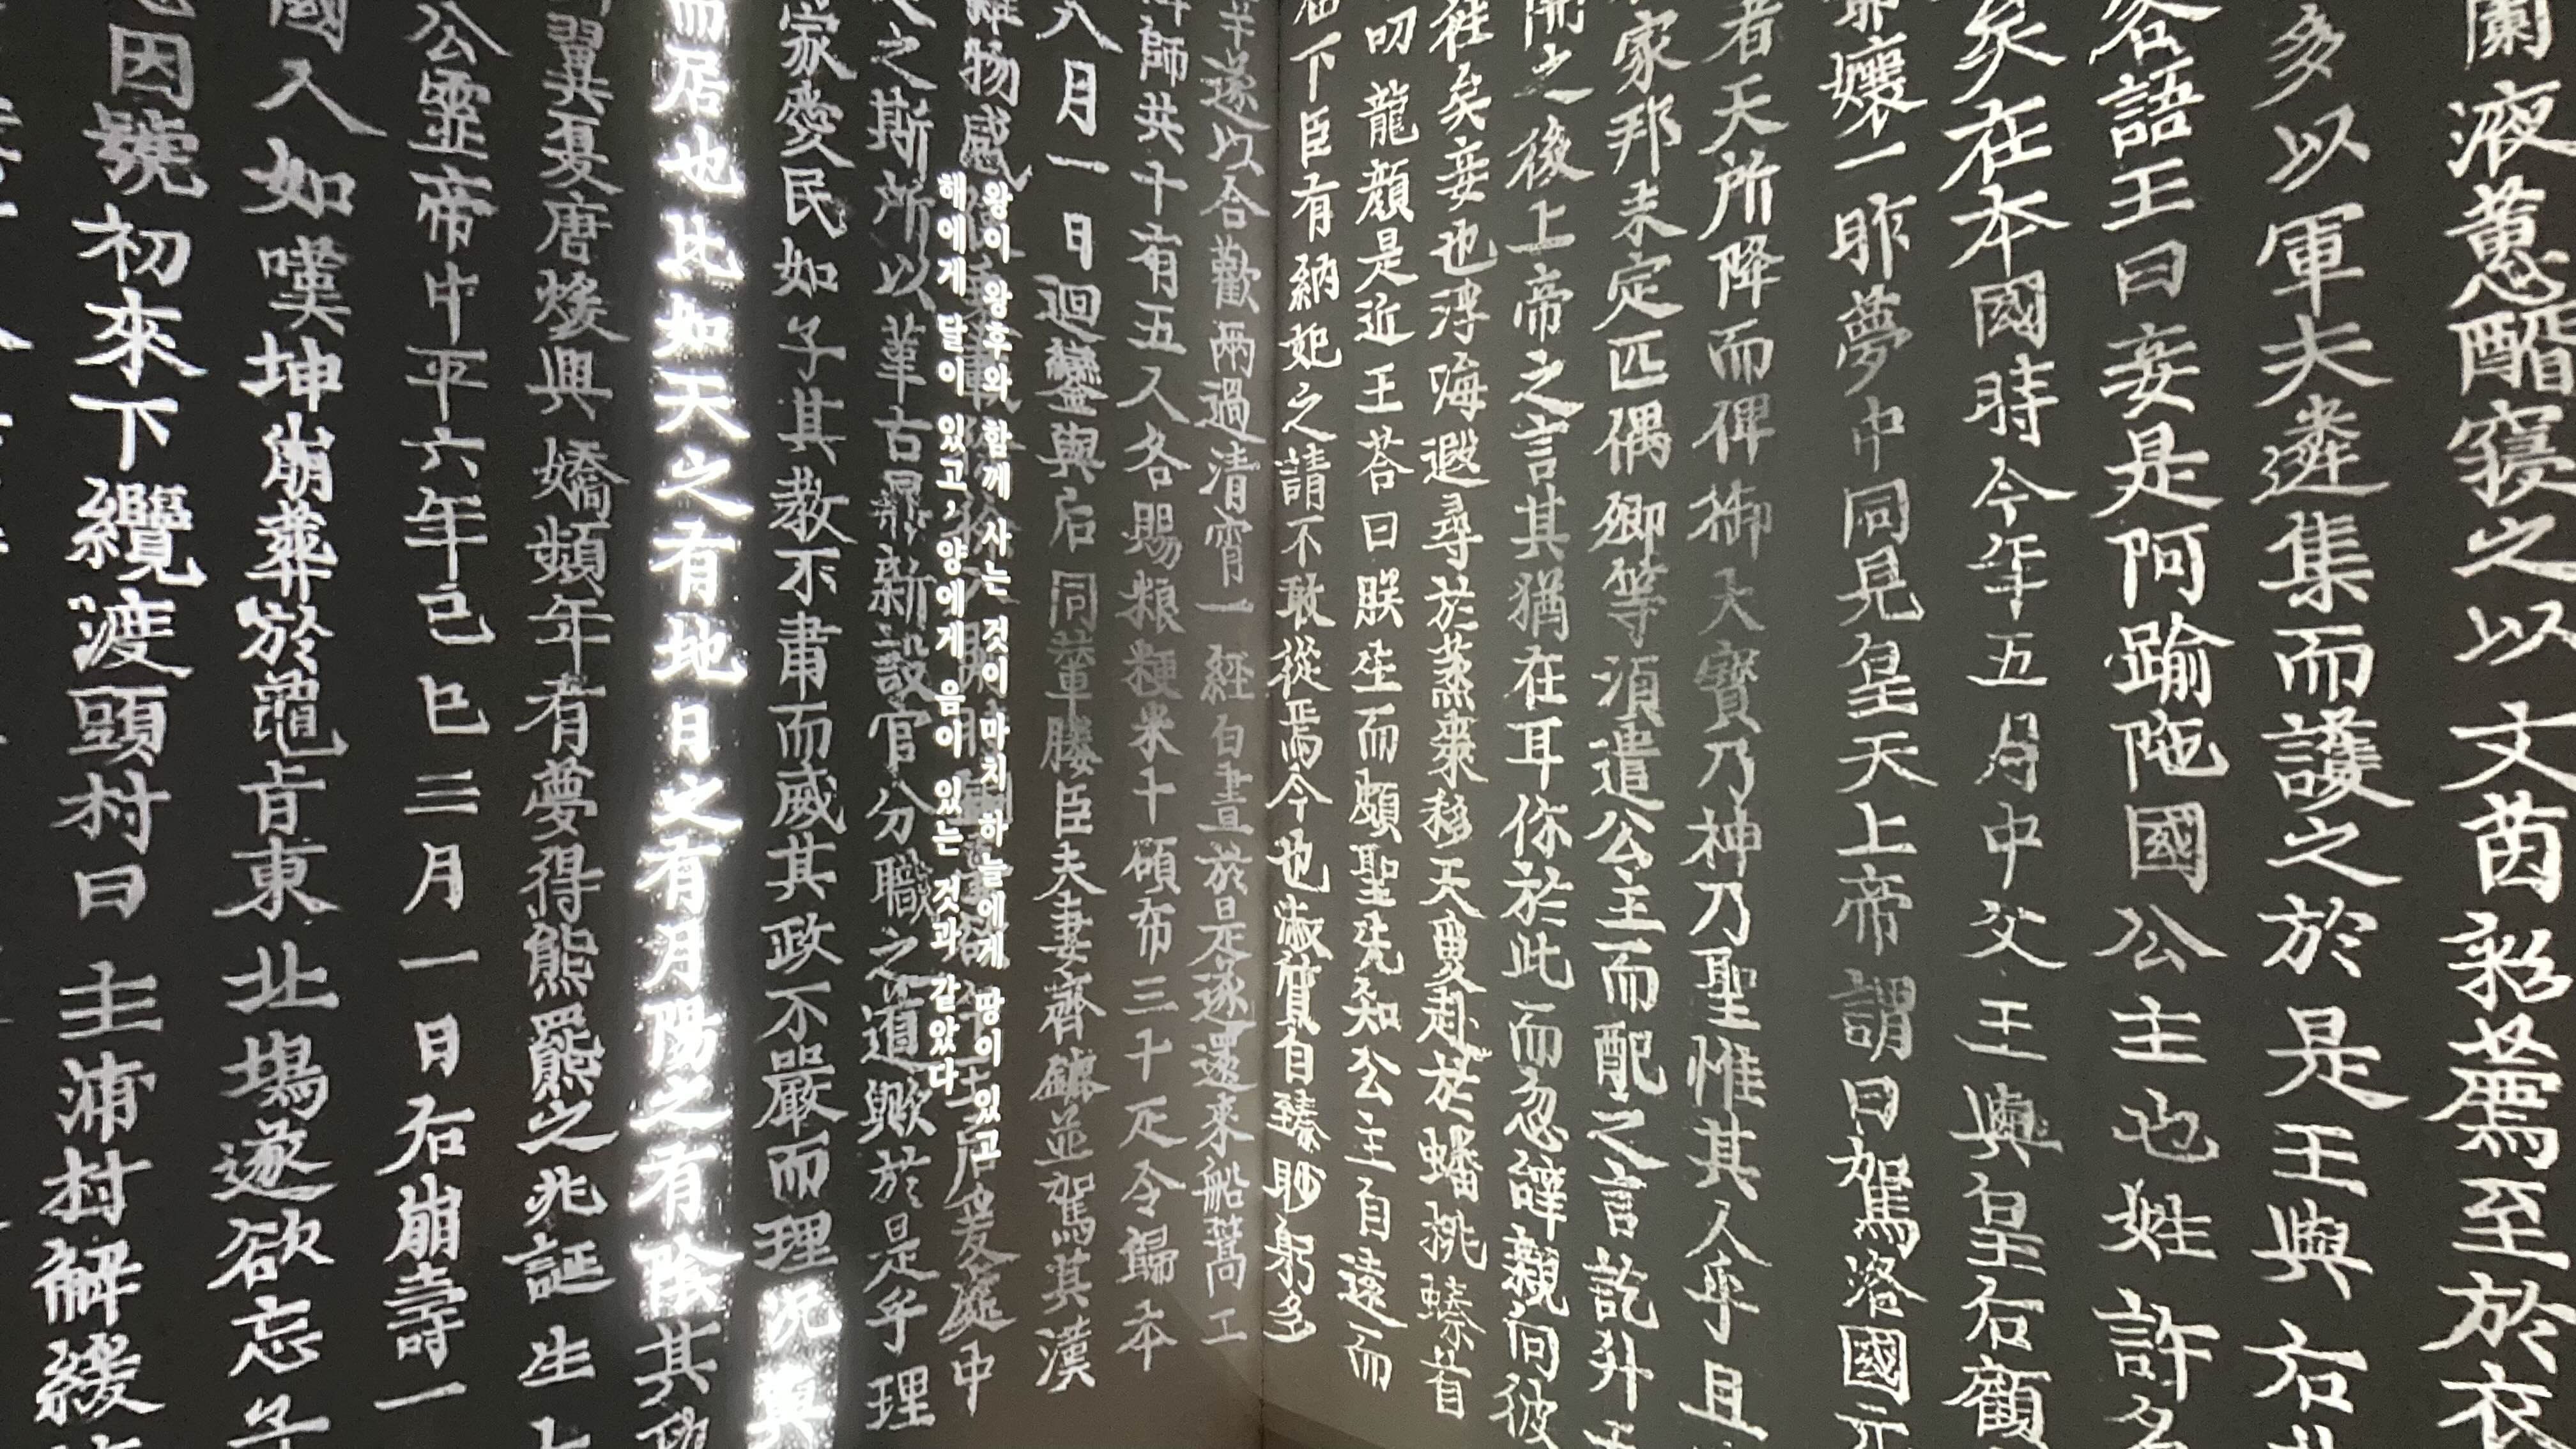 蘭液蕙醑寢之以文茵彩薦至於衣
多以軍夫遴集而護之於是王與后
容語王曰妾是阿踰陁國公主也姓許名
矣在本國時今年五月中父王與皇后顧
耶孃一昨夢中同見皇天上帝謂曰駕洛國元
者天所降而俾御大寶乃神乃聖惟其人乎且
家邦未定匹偶卿等湏遣公主而配之言訖升天
開之後上帝之言其猶在耳你於此而忽辭親向彼
往矣妾也浮海遐尋於蒸棗移天夐赴於蟠桃螓首
叨龍顔是近王荅曰朕生而頗聖先知公主自遠而
下臣有納妃之請不敢從焉今也淑質自臻眇躬多
幸遂以合歡兩過清宵一經白晝於是遂還來船篙工
師共十有五人各賜粮粳米十碩布三十疋令歸本
八月一日迴鑾與后同輦媵臣夫妻齊鑣並駕其漢
雜物感后爰處中
왕이 왕후와 함께 사는 것이 마치 하늘에게 땅이 있고
해에게 달이 있고, 양에게 음이 있는 것과 같았다
之斯所以革古鼎新設官分職之道歟於是乎理
家愛民如子其教不肅而威其政不嚴而理況與
而居也比如天之有地日之有月陽之有陰其功
翼夏唐媛興嬌頻年有夢得熊羆之兆誕生
公靈帝中平六年己巳三月一日后崩壽一
國人如嘆坤崩葬於龜旨東北塢遂欲忘子
因號初來下纜渡頭村曰主浦村解綾